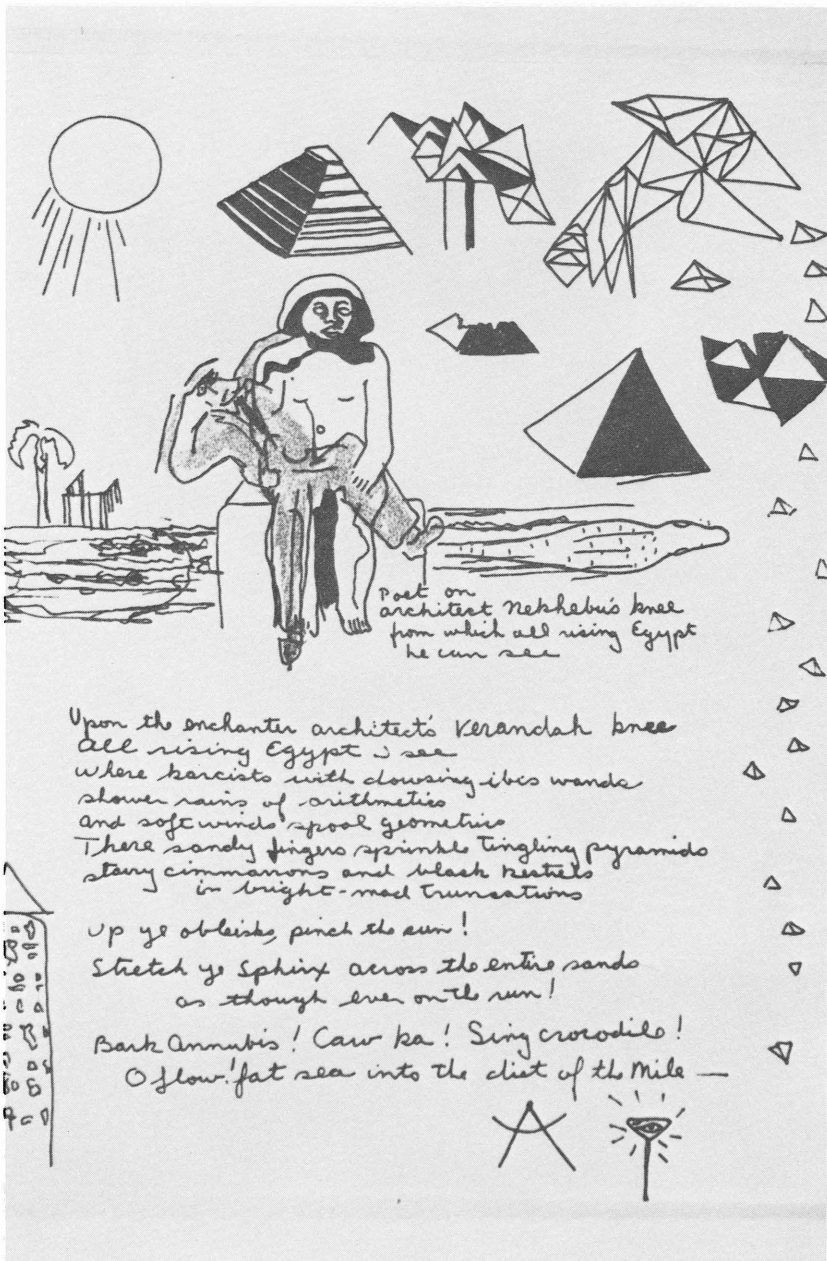 Poet on
architect Nekhebu's knee
from which all rising Egypt
he can see
Upon the enchanter architect's Verandah knee
All rising Egypt I see
where karcists with dowsing ibis wands
shower rains of arithmetics
and soft winds spool geometrics
There sandy fingers sprinkle tingling pyramids
starry cimmarons and black kestrels
in bright-mad truncations
Up ye obleisks, pinch the sun!
Stretch ye Sphinx across the entire sands
as though ever on the run!
Bark Annubis! Caw ka! Sing crocodile!
O flow! fat sea into the diet of the Nile —